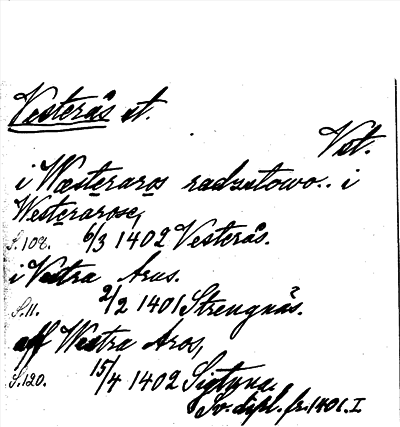 Vesterås st.
Vst.
i Wæsteraros radzstowo.. i
Westerarose,
S.108. 6/3 1402 Vesterås.
i Vestra Arus.
S.11. 2/2 1401 Strengnäs.
aff Westra Aros,
S.120. 15/4 1402 Sigtuna.
Sv. dipl. fr. 1401. I